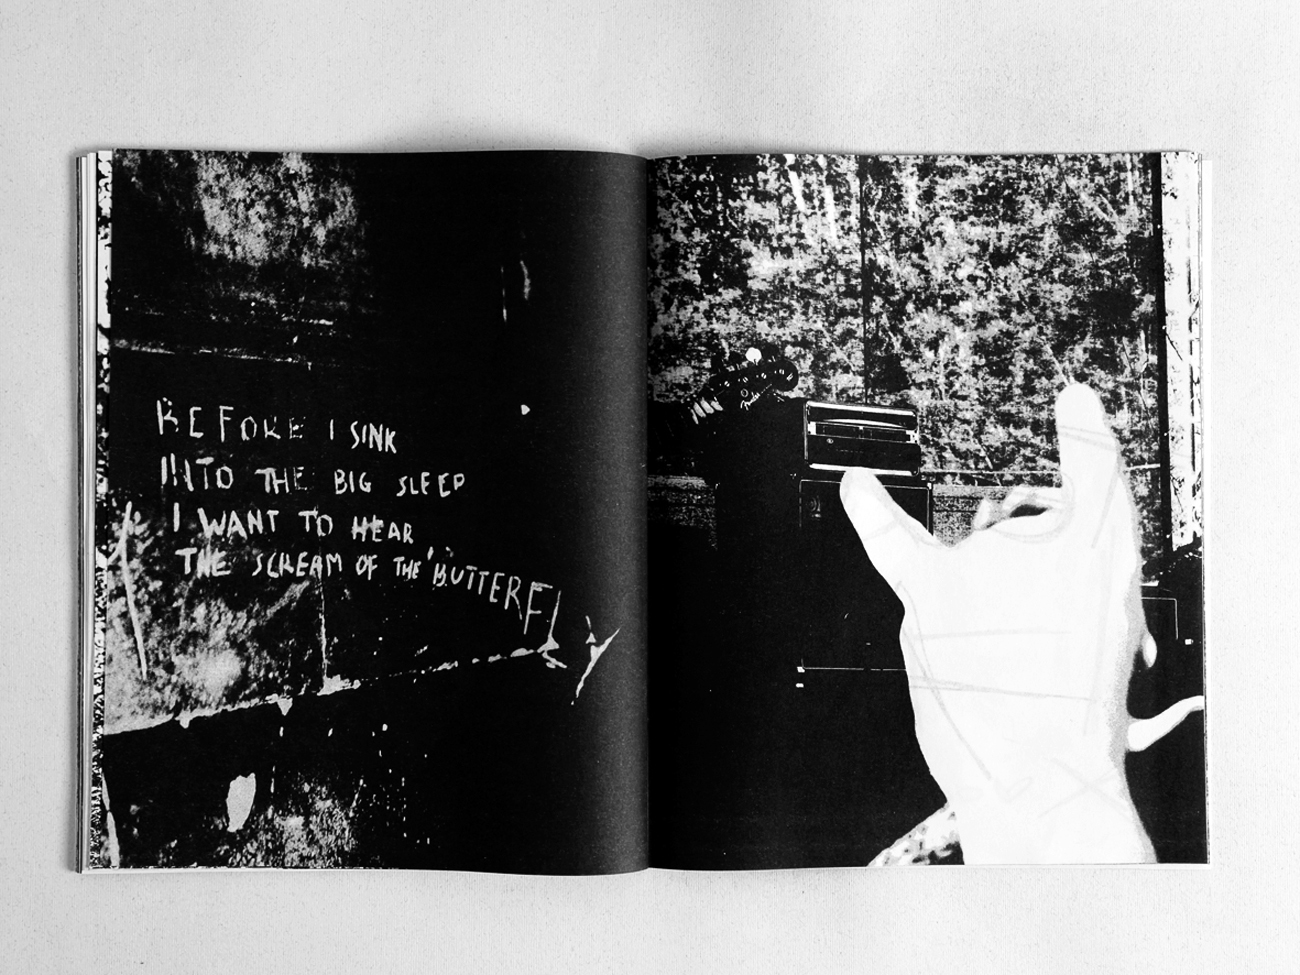 BEFORE I SINK
INTO THE BIG SLEEP
I WANT TO HEAR
THE SCREAM OF THE BUTTERFLY
Fender